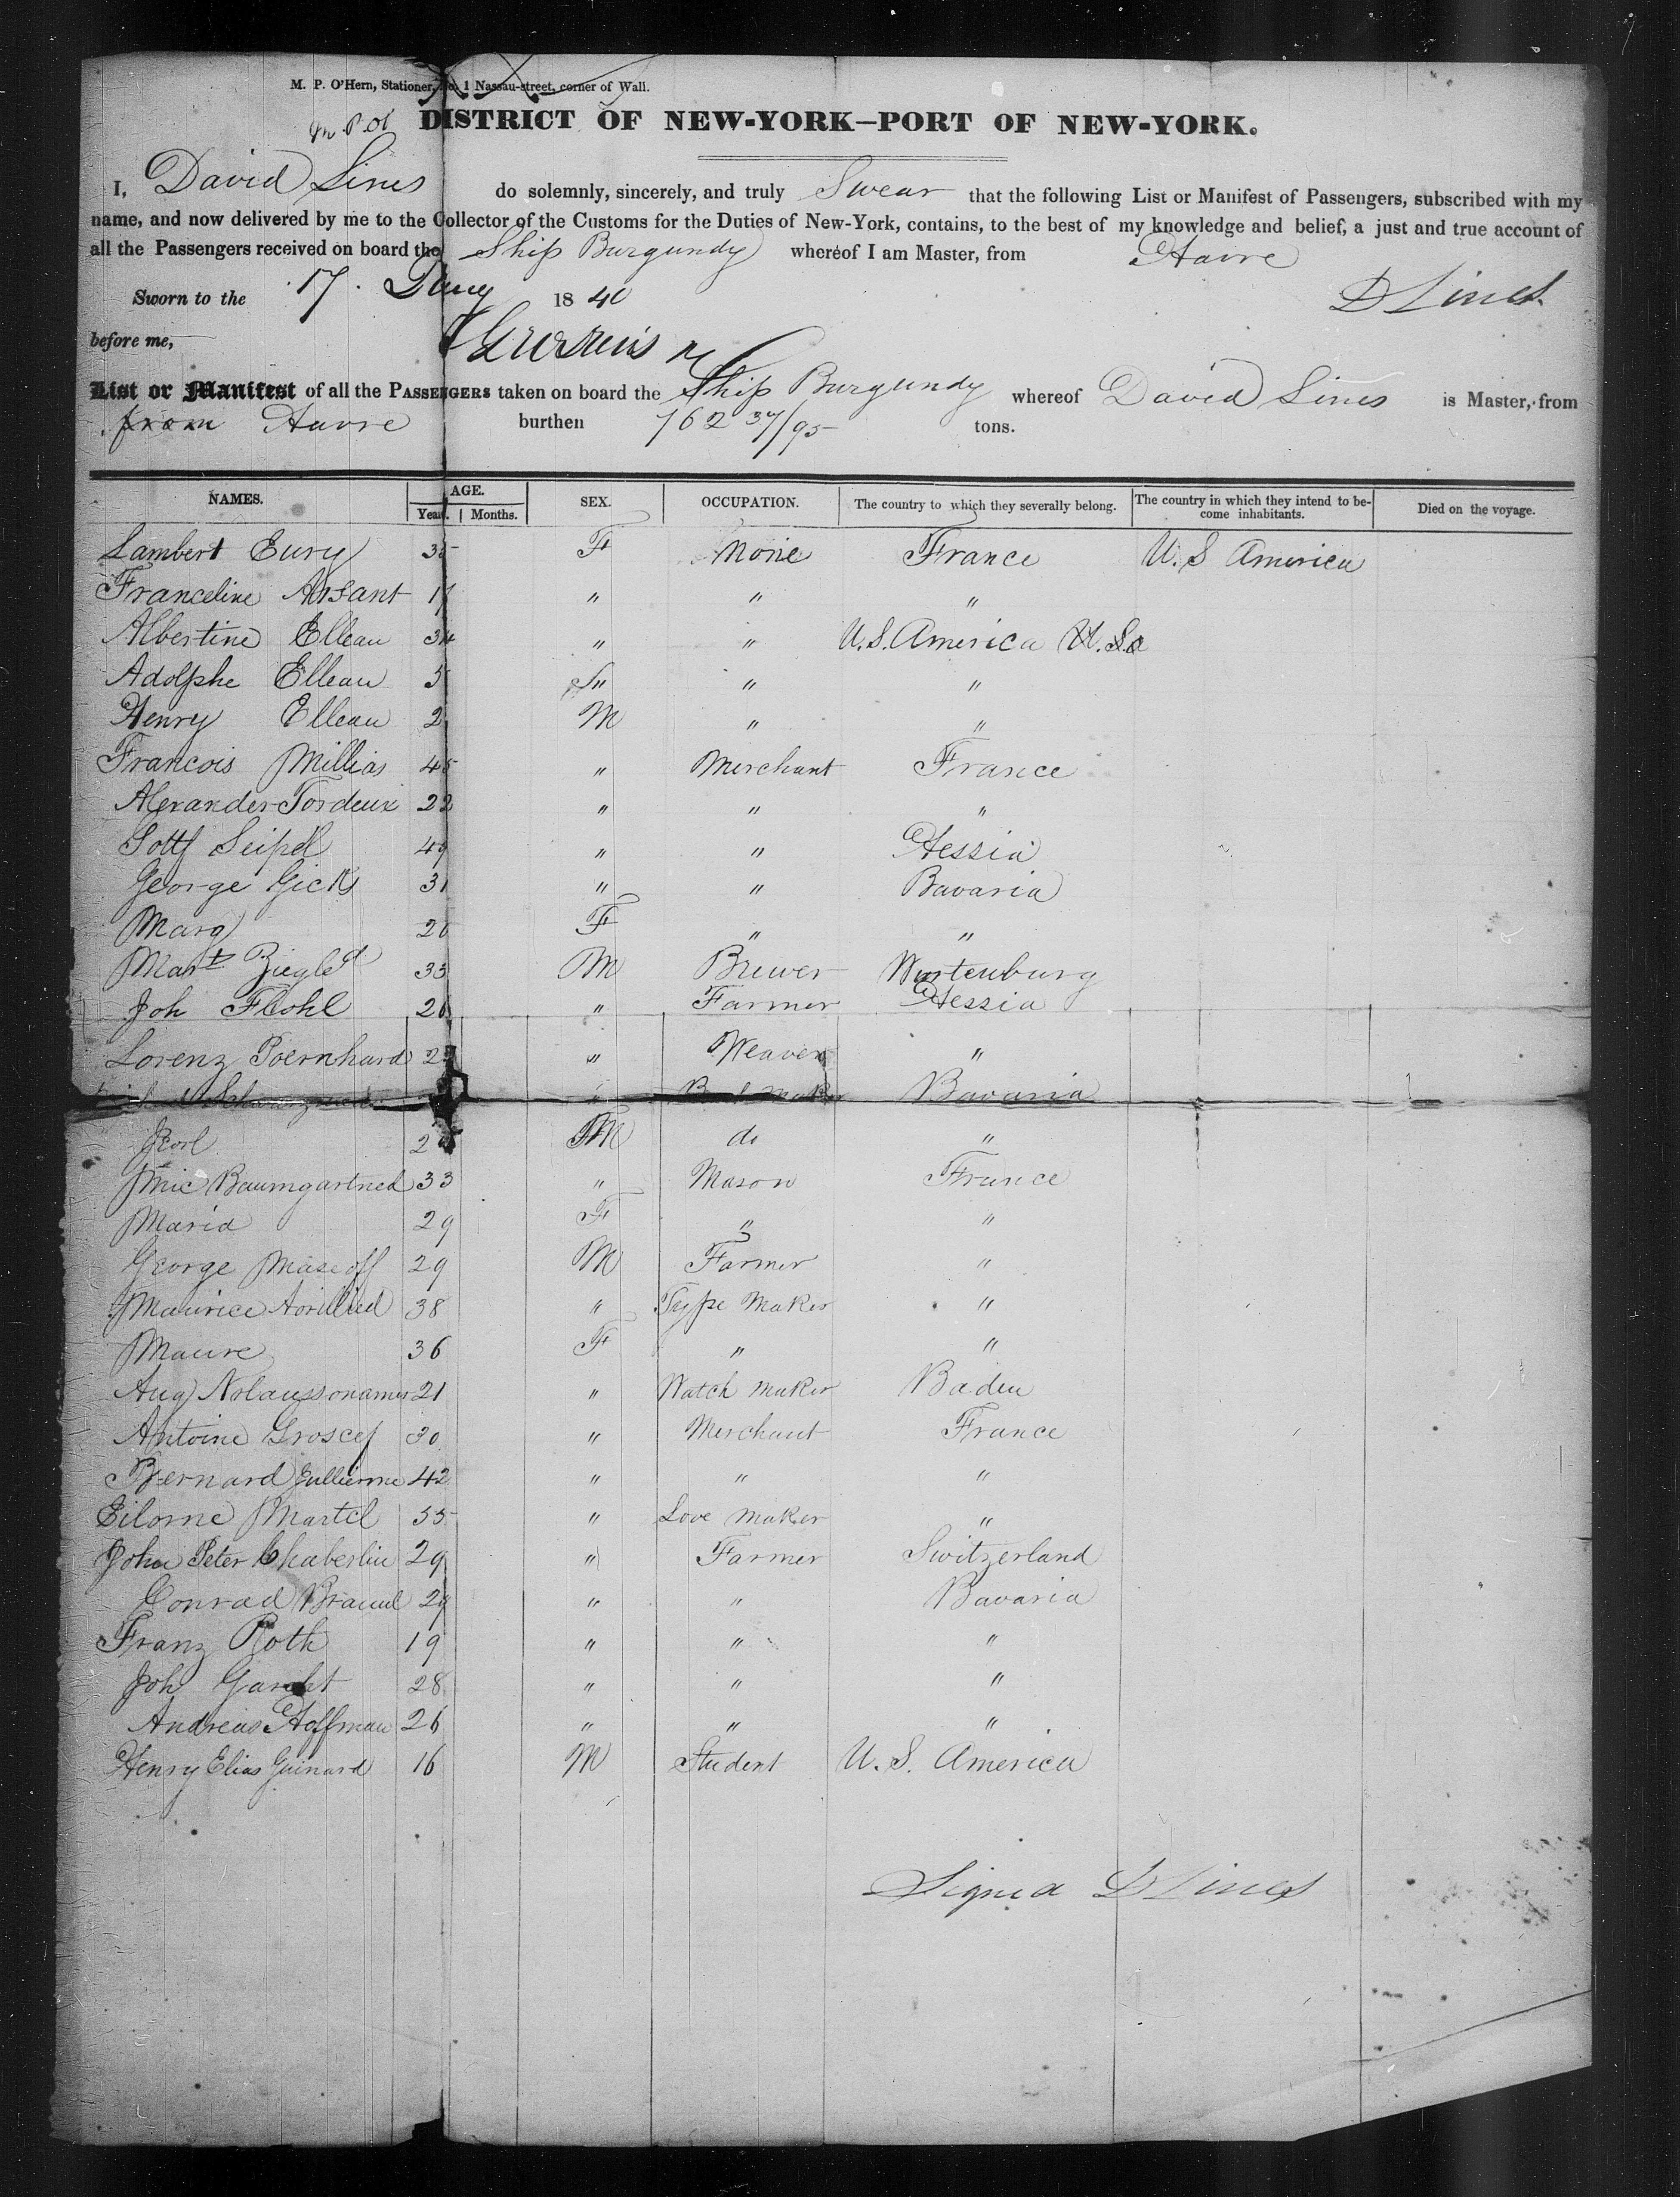 M. P. O'Hern, Stationer, No. 1 Nassau-street, corner of Wall.
DISTRICT OF NEW-YORK—PORT OF NEW-YORK.
I, David Lines do solemnly, sincerely, and truly Swear that the following List or Manifest of Passengers, subscribed with my
name, and now delivered by me to the Collector of the Customs for the Duties of New-York, contains, to the best of my knowledge and belief, a just and true account of
all the Passengers received on board the Ship Burgundy whereof I am Master, from Havre
Sworn to the 17. 1840 D Lines
before me,
List or Manifest of all the PASSENGERS taken on board the Ship Burgundy whereof David Lines is Master, from
from Havre burthen 762 37/95 tons.
NAMES. AGE. SEX. OCCUPATION. The country to which they severally belong. The country in which they intend to be- Died on the voyage.
Years. Months. come inhabitants.
Lambert Eury 35 F None France U.S America
Franceline 17 " " "
Albertine Elleau 34 " " U.S. America
Adolphe Elleau 5 " " "
Henry Elleau 2 M " "
Francois Millias 45 " Merchant France
Alexander Tordeux 22 " " "
Seipel 49 " " Hessia
George Gick 31 " " Bavaria
Marg F " "
Mart 33 M Brewer Wurtenburg
Joh Flohl 26 " Farmer Hessia
Lorenz Poernhard " Weaver "
" Bavaria
M do "
Mic Baumgartned 33 " Mason France
Maria 29 F " "
George 29 M Farmer "
Maurice 38 " Type Maker "
Maure 36 F " "
Aug 21 " Watch Maker Baden
Antoine 30 " Merchant France
Bernard Jullienne 42 " " "
Martel 35 " Maker "
John Peter Chaberlin 29 " Farmer Switzerland
Conrad 29 " " Bavaria
Franz Roth 19 " " "
Joh 28 " " "
Andreas Hoffman 26 " " "
Henry Elias Guinard 16 M Student U.S. America
Signed D Lines